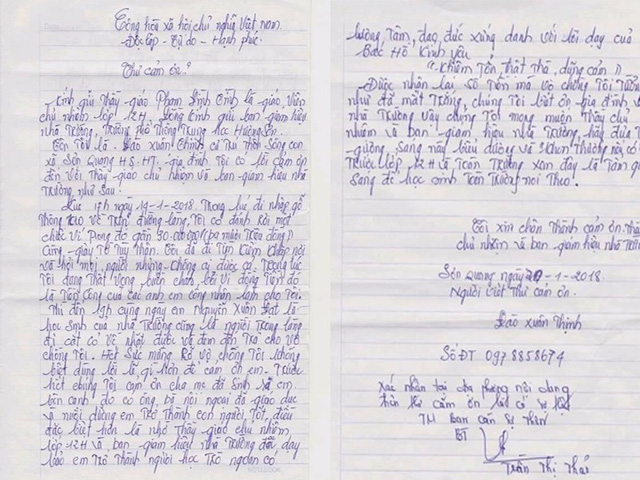 Cộng hòa xã hội chủ nghĩa Việt Nam
Độc lập - Tự do - Hạnh phúc.
Thư cảm ơn
Kính gửi Thầy giáo Phan Đình là giáo viên
chủ nhiệm lớp 12H. Đồng kính gửi ban giám hiệu
nhà Trường, Trường phổ Thông Trung học Hương Sơn
Tên Tôi là Đào Xuân Thịnh cư Trú Thôn Sông con
xã Sơn Quang HS-HT, gia đình Tôi có lời cảm ơn
đến với Thầy giáo chủ nhiệm và ban giám hiệu nhà
Trường như sau:
Lúc 17h ngày 19-1-2018. Trong lúc đi nhập gỗ
Thông keo về Trên đường làng, Tôi có đánh Rơi một
chiếc ví Trong đó gần 30.000.000đ (ba mươi triệu đồng)
cùng giấy Tờ Tùy Thân. Tôi đã đi Tìm Kiếm Khắp nơi
và hỏi mọi người nhưng Không ai được cả. Trong lúc
Tôi đang Thất vọng buồn chán bởi vì đồng Tiền đó
là Tiền công của các anh em công nhân làm cho Tôi.
Thì đến 19h cùng ngày em Nguyễn Xuân Đạt là
học sinh của nhà Trường cũng là người Trong làng
đi cắt cỏ về nhặt được và đem đến Trả cho vợ
chồng Tôi. Hết sức mừng Rỡ vợ chồng Tôi Không
biết dùng lời lẽ gì hơn để cảm ơn em. Trước
hết chúng Tôi cảm ơn cha mẹ đã Sinh ra em
bên cạnh đó có ông, bà nội ngoại đã giáo dục
và nuôi dưỡng em Trở Thành con người Tốt, điều
đặc biệt hơn là nhờ Thầy giáo chủ nhiệm
lớp 12H và ban giám hiệu nhà Trường đã dạy
bảo em Trở Thành người học Trò ngoan có
lương Tâm, đạo đức xứng danh với lời dạy của
Bác Hồ Kính yêu
"Khiêm Tốn thật Thà, dũng cảm"
Được nhận lại số Tiền mà vợ chồng Tôi Tưởng
như đã mất Trắng, chúng Tôi biết ơn gia đình
nhà Trường vậy chúng Tôi mong muốn Thầy chủ
nhiệm và ban giám hiệu nhà Trường, hãy đưa
gương sáng này biểu dương và khen Thưởng này có
Trước lớp 12H và Toàn Trường xem đây là Tấm gương
Sáng để học sinh Toàn Trường noi Theo.
Tôi xin chân Thành cảm ơn Thầy
chủ nhiệm và ban giám hiệu nhà Trường
Sơn Quang ngày -1-2018.
Người viết Thư cảm ơn.
Đào Xuân Thịnh
Số ĐT 0978858674
Xác nhận tại địa phương nội dung
trên thư cảm ơn là có sự thật
TM Ban cán sự thôn
BT
Trần Thị Thái